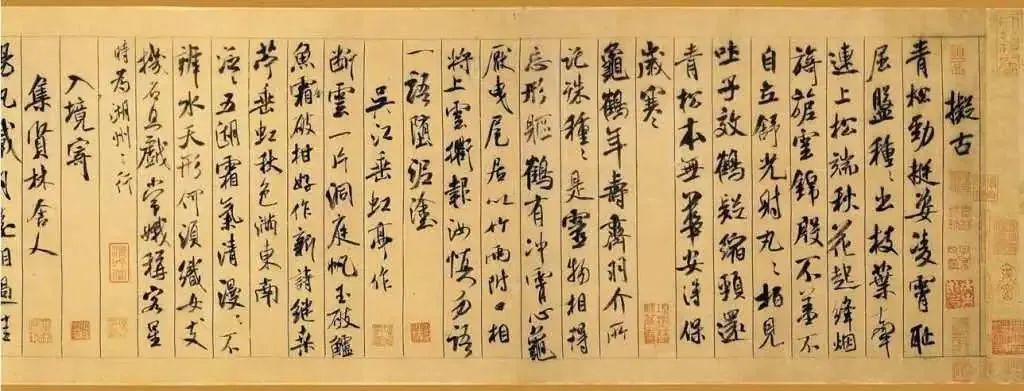 擬古
青松勁挺姿凌霄恥
屈盤種〻出枝葉牽
連上松端秋花起絳烟
旖旎雲錦殷不羞不
自立舒光射丸〻柏見
吐子效鶴疑縮頸還
青松本無華安得保
歲寒〻
龜鶴年壽齊羽介所
託殊種〻是靈物相得
忘形軀鶴有沖霄心龜
厭曳尾居以竹兩附口相
將上雲衢報汝慎勿語
一語墮泥塗
吳江垂虹亭作
斷雲一片洞庭帆玉破鱸
魚霜破柑好作新詩繼桑
苧垂虹秋色滿東南
泛〻五湖霜氣清漫〻不
辨水天形何須織女支
機石且戲常娥稱客星
時為湖州之行
入境寄
集賢林舍人
揚帆載月遠相過佳